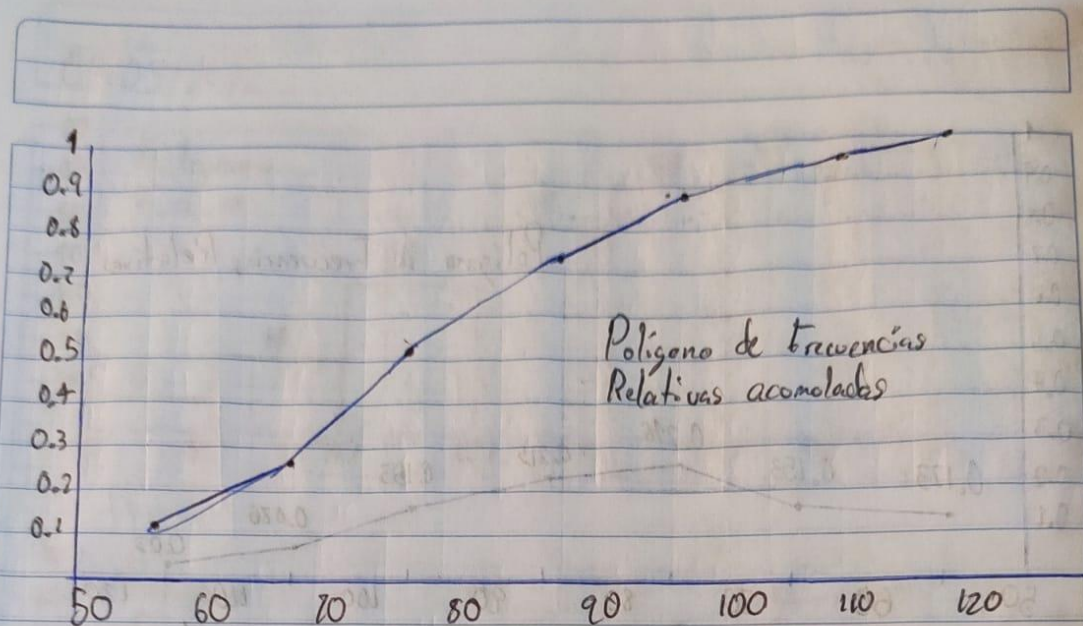 1
0.9
0.8
0.7
0.6
0.5
0.4
0.3
0.2
0.1
Polígono de frecuencias
Relativas acomoladas
50 60 70 80 90 100 110 120